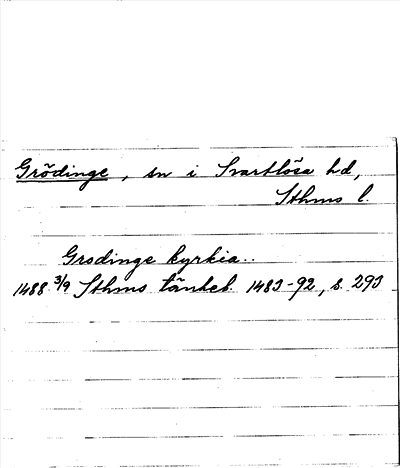 Grödinge, sn i Svartlösa hd,
Sthms l.
Grodinge kyrkia..
1488 3/9 Sthms tänkeb. 1483-92, s. 293